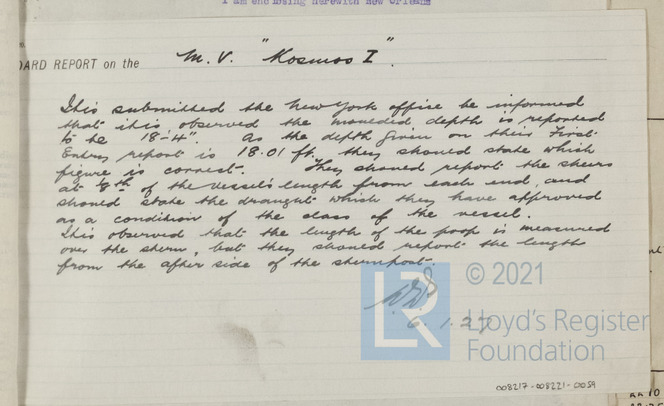 I am enclosing herewith New Orleans
OARD REPORT on the M.V. "Kosmos I".
It is submitted the New York office be informed
that it is observed the moulded depth is reported
to be 18-4". As the depth given on their First
Entry report is 18.01 ft. they should state which
figure is correct. They should report the sheers
at 1/8th of the vessel's length from each end, and
should state the draught which they have approved
as a condition of the class of the vessel.
It is observed that the length of the poop is measured
over the stern, but they should report the length
from the after side of the sternpost.
6.1.27
LR
© 2021
Lloyd's Register
Foundation
008217-008221-0059